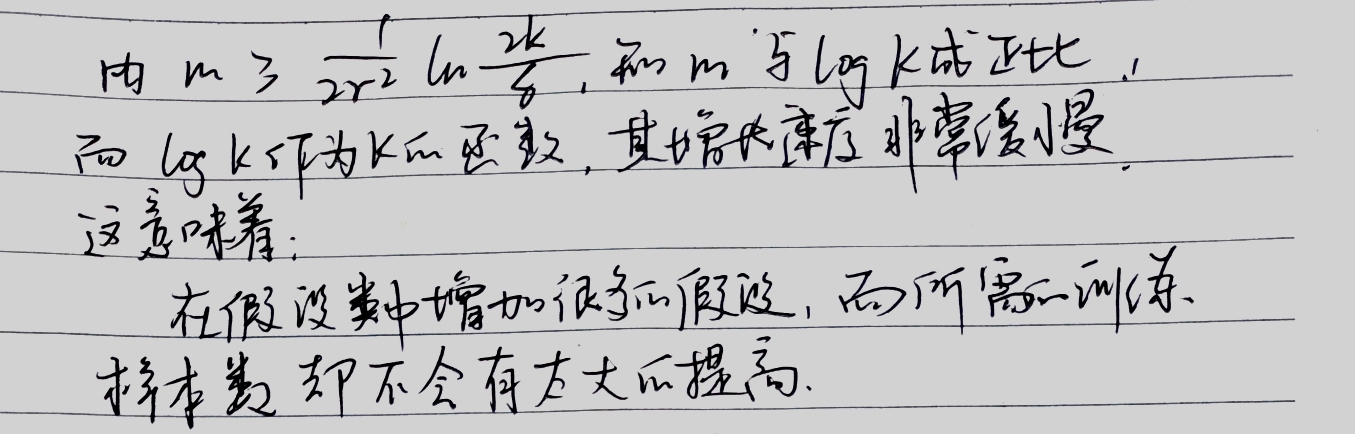 由 m ≥ \frac{1}{2γ²} ln \frac{2k}{δ}, 知 m 与 log k 成正比,
而 log k 作为 k 的函数, 其增长速度非常缓慢.
这意味着:
在假设类中增加很多的假设, 而所需的训练
样本数却不会有太大的提高.